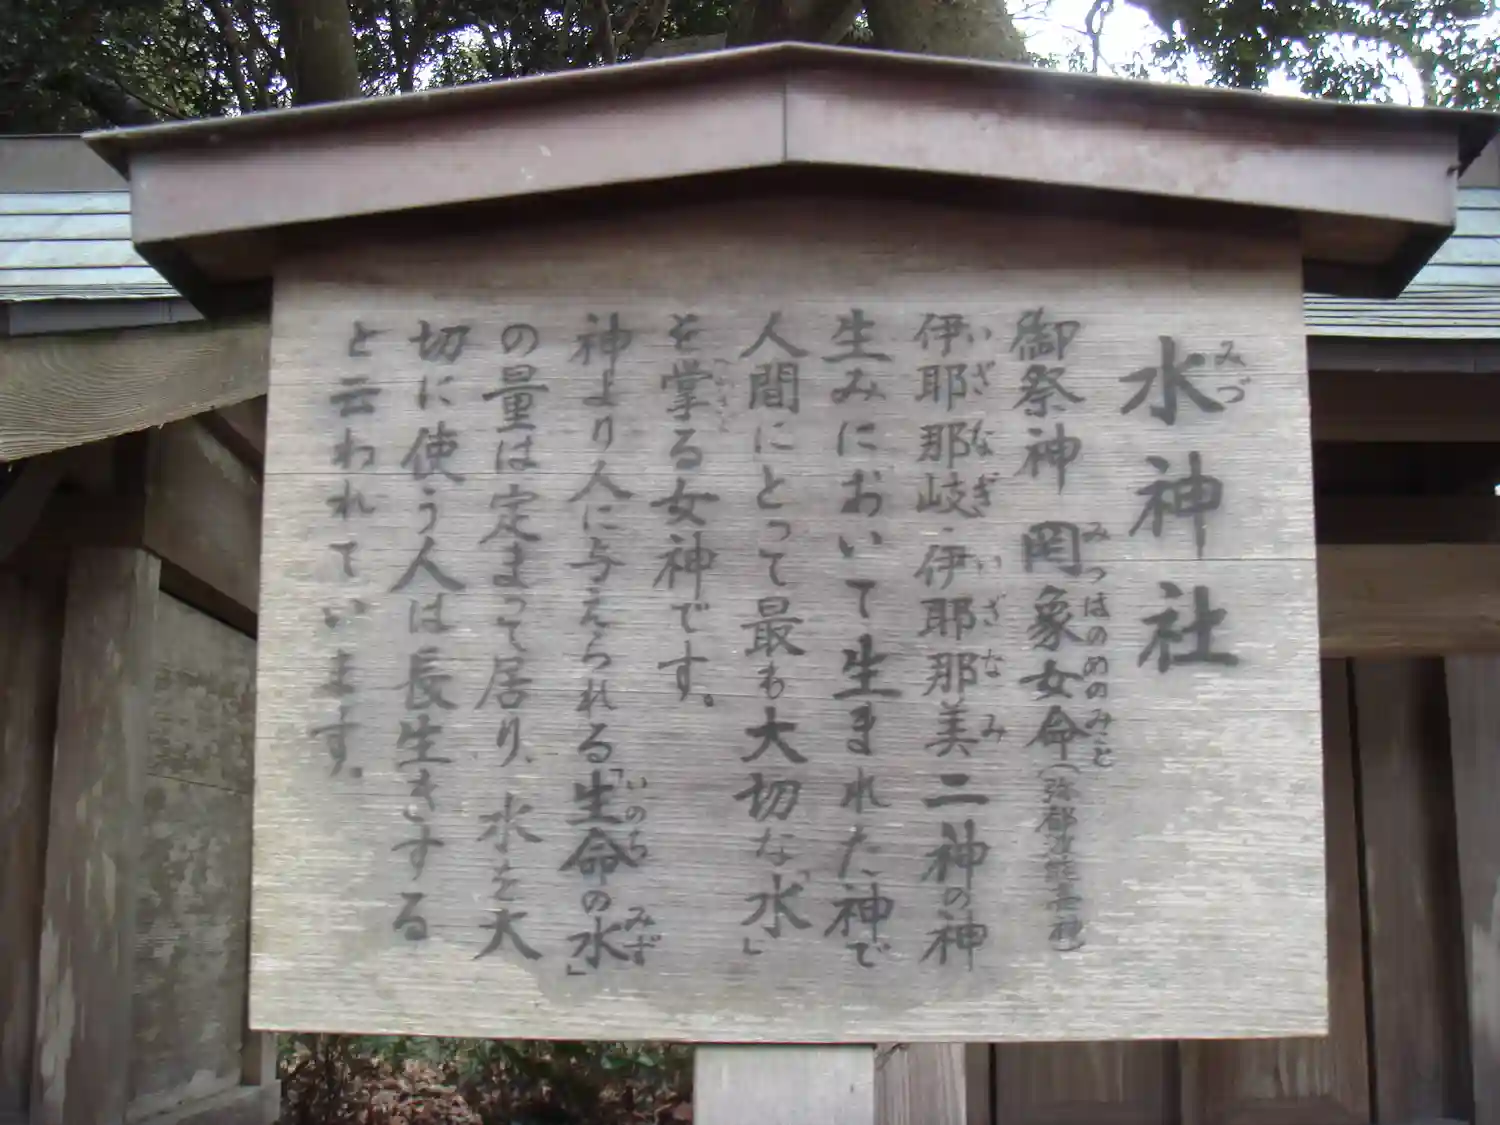 水神社
御祭神 罔象女命(弥都波能売神)
伊耶那岐・伊耶那美二神の神
生みにおいて生まれた神で
人間にとって最も大切な「水」
を掌る女神です。
神より人に与えられる「生命の水」
の量は定まって居り、水を大
切に使う人は長生きする
と云われています。
みづ
みつはのめのみこと
いざなぎ いざなみ
いのち みず